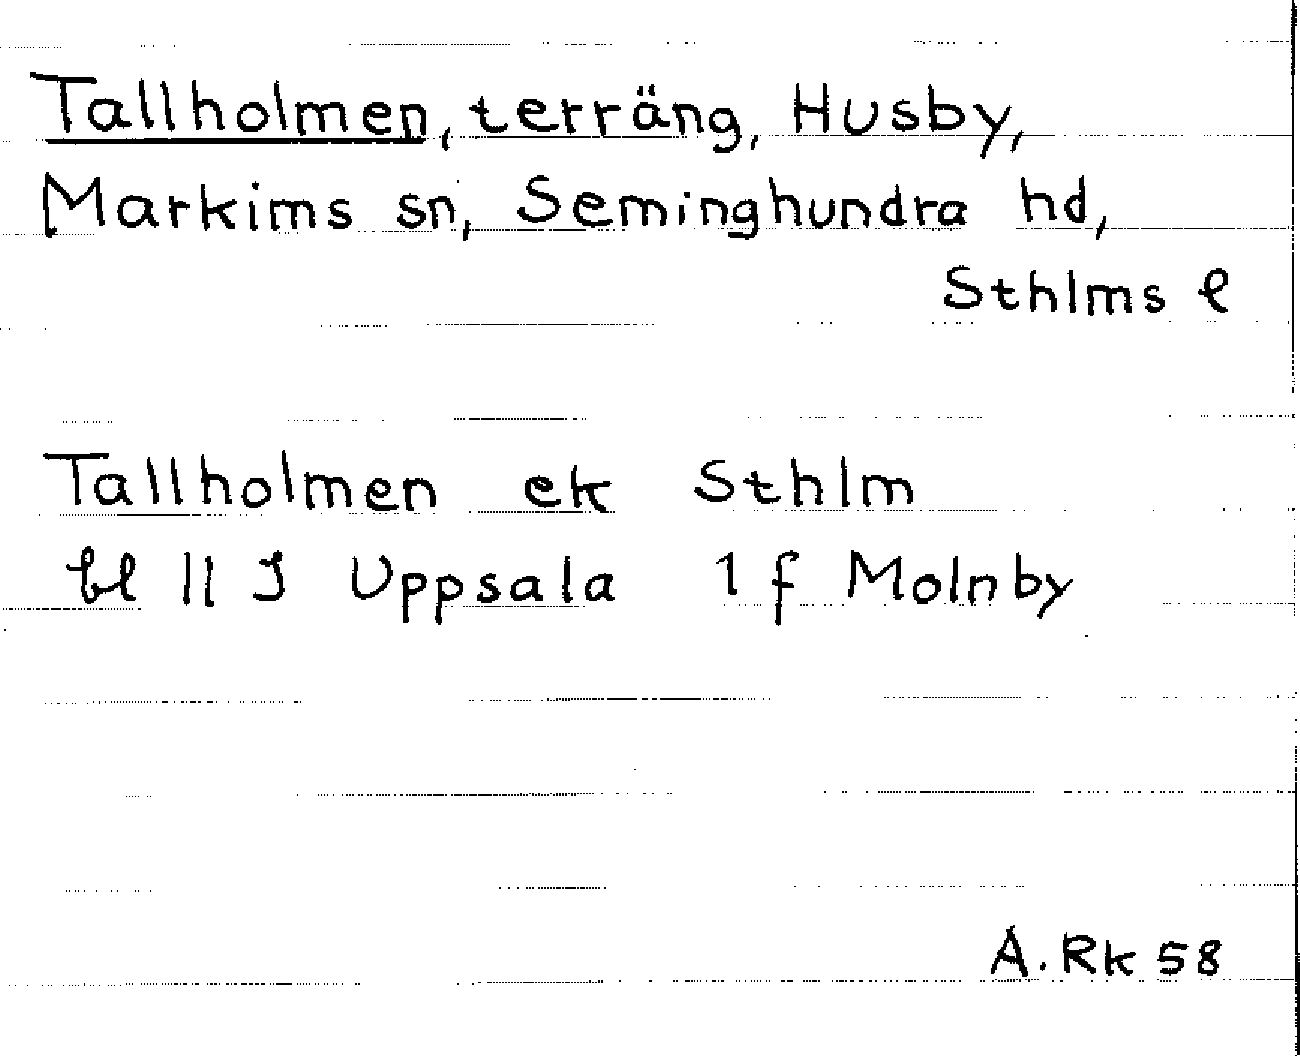 Tallholmen, terräng, Husby,
Markims sn, Seminghundra hd,
Sthlms l
Tallholmen ek Sthlm
bl 11 I Uppsala 1 f Molnby
A. Rk 58